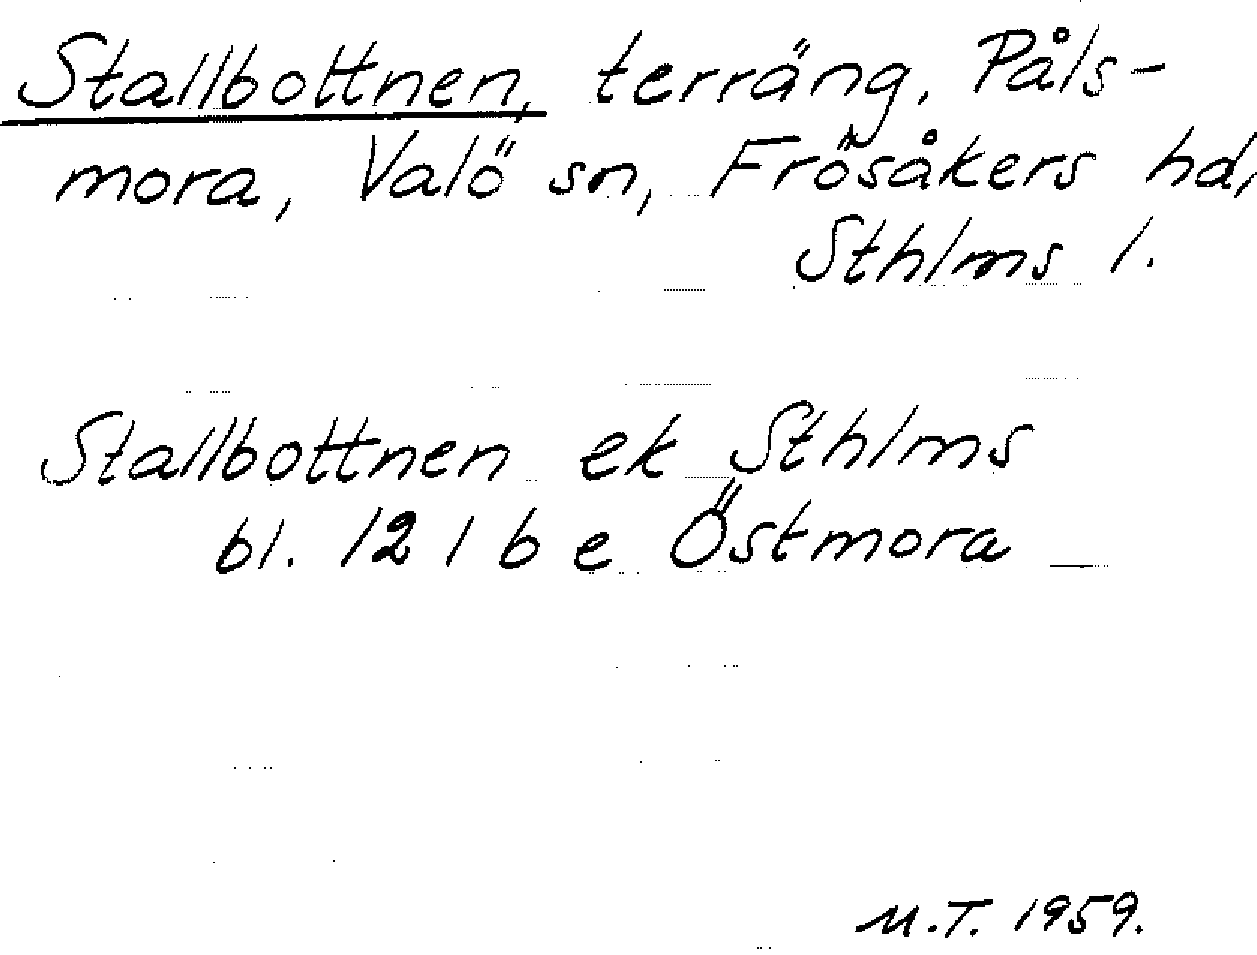 Stallbottnen, terräng, Påls-
mora, Valö sn, Frösåkers hd,
Sthlms l.
Stallbottnen ek Sthlms
bl. 121 b e Östmora
M.T. 1959.